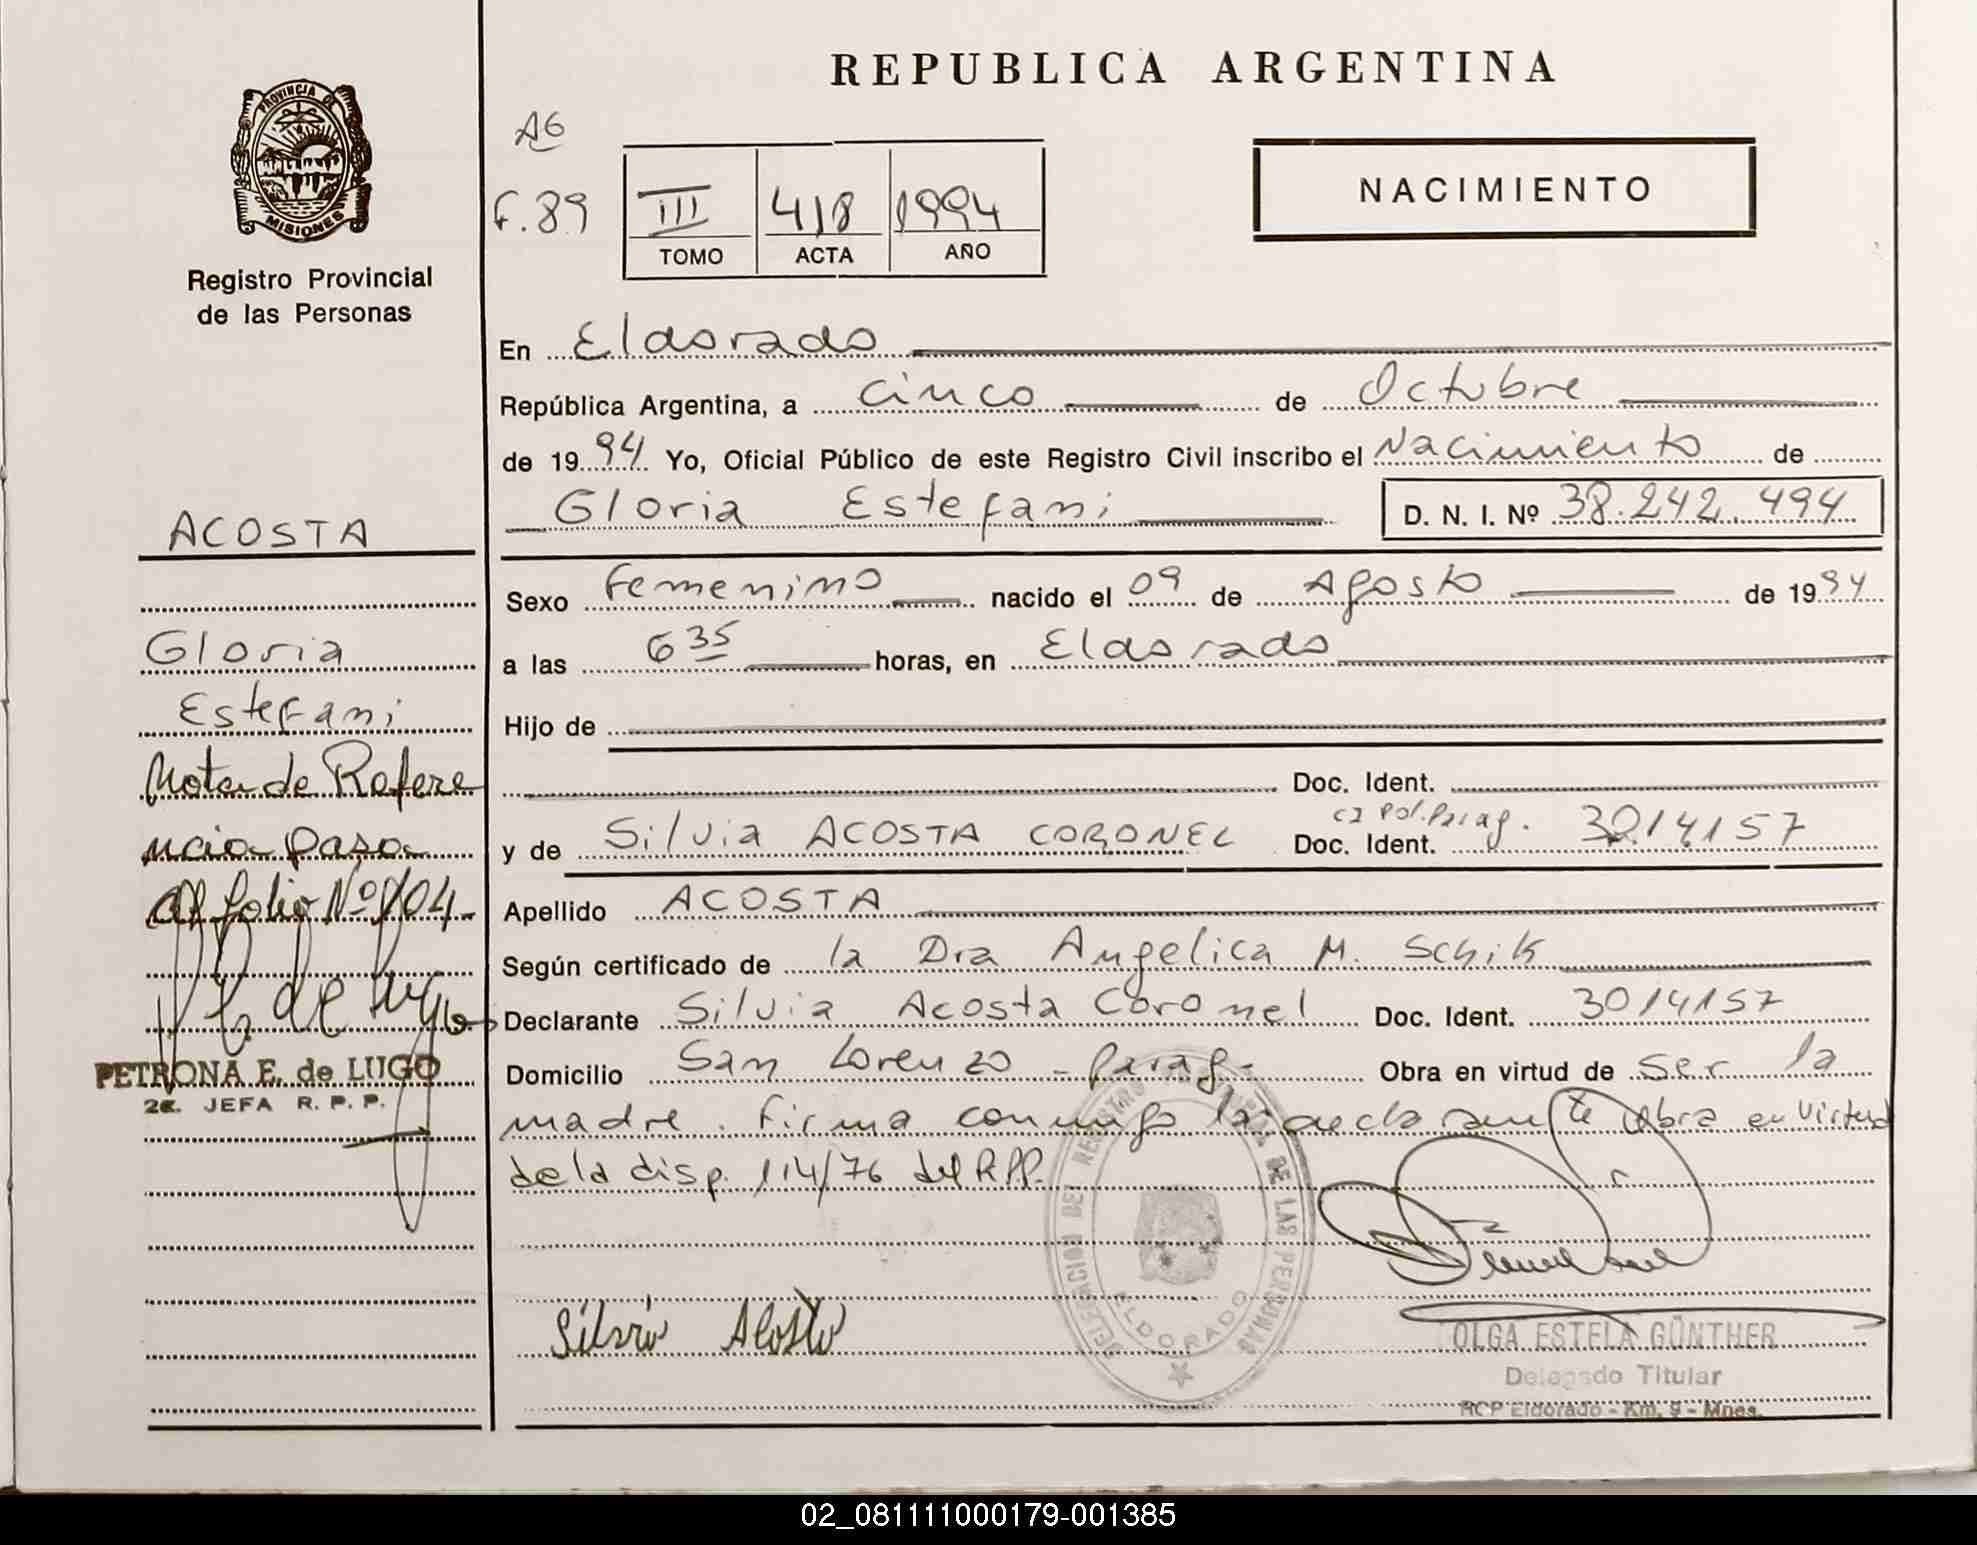 REPUBLICA ARGENTINA
PROVINCIA DE
MISIONES
Registro Provincial
de las Personas
A6
F. 89
III 418 1994
TOMO ACTA AÑO
NACIMIENTO
En Eldorado
República Argentina, a cinco de Octubre
de 1994 Yo, Oficial Público de este Registro Civil inscribo el Nacimiento de
Gloria Estefani D. N. I. Nº 38.242.494
Sexo Femenino nacido el 09 de Agosto de 1994
a las 6 35 horas, en Eldorado
Hijo de
Doc. Ident.
y de Silvia ACOSTA CORONEL Doc. Ident. CI Pol. Parag. 3014157
Apellido ACOSTA
Según certificado de la Dra Angelica M. Schik
Declarante Silvia Acosta Coronel Doc. Ident. 3014157
Domicilio San Lorenzo - Parag- Obra en virtud de ser la
madre. Firma conmigo la declarante Obra en virtud
de la disp. 114/76 del R.P.P.
ACOSTA
Gloria
Estefani
Nota de Refere
ncia pasa
al folio Nº 104
PETRONA E. de LUGO
2a. JEFA R. P. P.
Silvia Acosta
DELEGACION DEL REGISTRO DE LAS PERSONAS
ELDORADO
OLGA ESTELA GÜNTHER
Delegado Titular
RCP Eldorado - Km. 9 - Mnes.
02_081111000179-001385